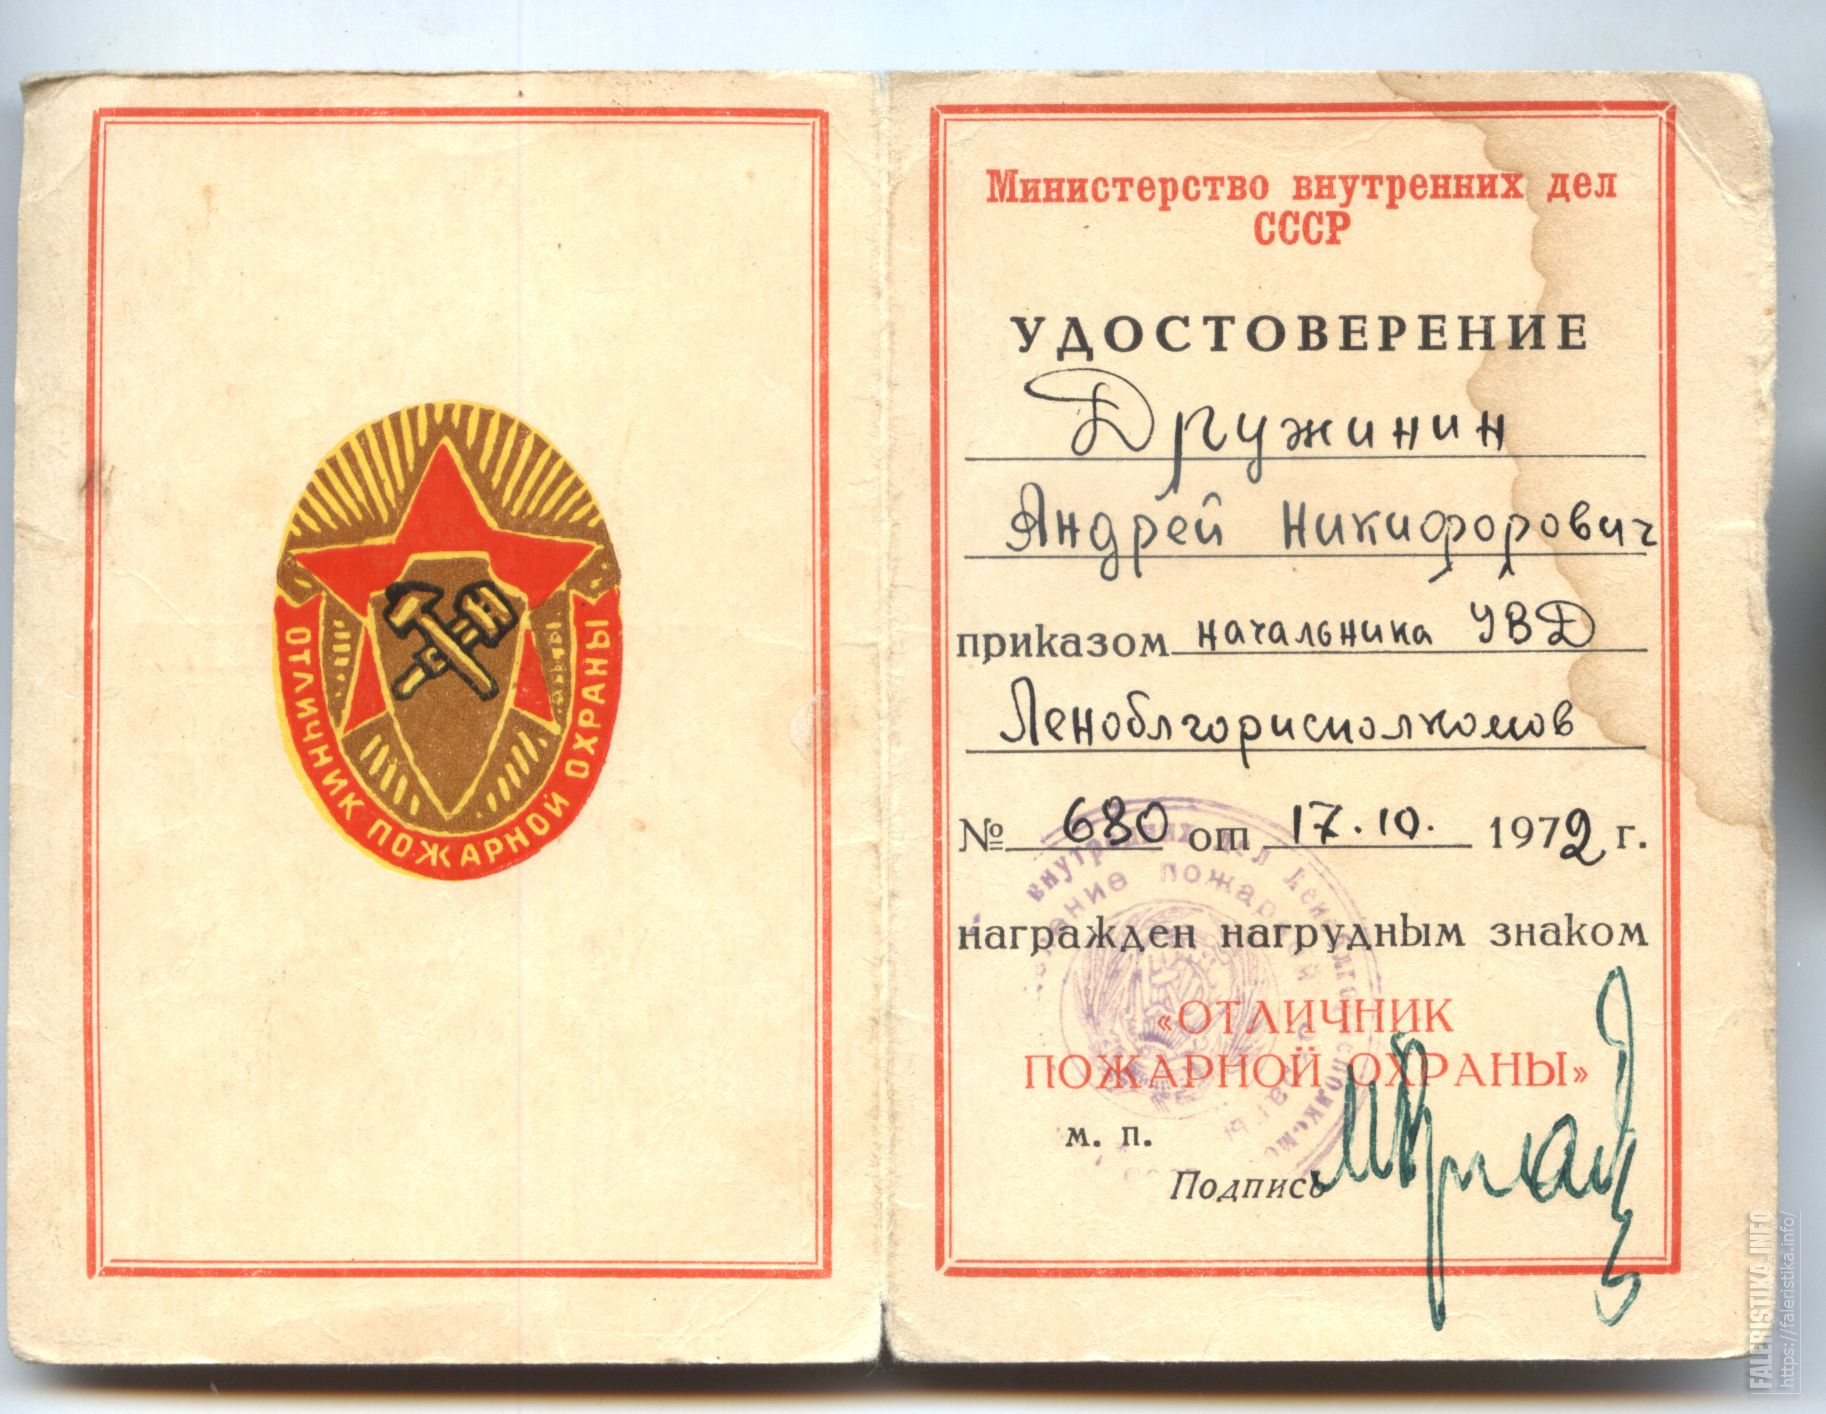 ОТЛИЧНИК ПОЖАРНОЙ ОХРАНЫ
Министерство внутренних дел
СССР
УДОСТОВЕРЕНИЕ
Дружинин
Андрей Никифорович
приказом начальника УВД
Леноблгорисполкомов
№ 680 от 17.10. 1972 г.
награжден нагрудным знаком
«ОТЛИЧНИК
ПОЖАРНОЙ ОХРАНЫ»
м. п.
Подпись
внутренних дел
пожарной
FALERISTIKA.INFO
https://faleristika.info/